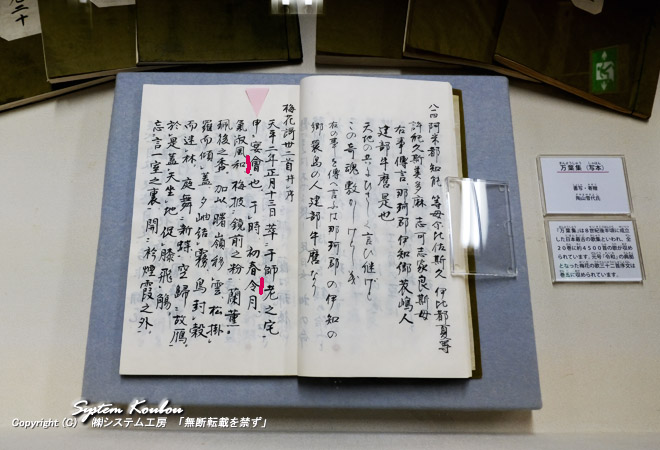 八一四 阿米都知能 等母尓比佐斯久 伊比都夏等
許能久斯美多麻 志可志家良斯母
右事傳言那珂郡伊知郷蓑嶋人
建部牛麿是也
天地の共に久しく言ひ継げと
この奇魂敷かしけらしも
右の事を傳へ言ふは那珂郡の伊知の
郷蓑島の人建部牛麿なり
梅花謌卅二首并序
天平二年正月十三日 萃于師老之宅
申宴會也 于時初春令月
氣淑風和 梅披鏡前之粉 蘭薫
珮後之香 加以曙嶺移雲 松掛
羅而傾盖 夕岫結霧 鳥封縠
而迷林 庭舞新蝶 空歸故鴈
於是盖天坐地 促膝飛觴
忘言一室之裏 開衿煙霞之外
万葉集（写本）
墨写・寄贈
「万葉集」は８世紀後半頃に成立
した日本最古の歌集といわれ、全
20巻に約4500首の歌が収め
られています。元号「令和」の典拠
となった梅花の歌三十二首序文は
巻五に収められています。
System Koubou
Copyright (C) ㈱システム工房 「無断転載を禁ず」